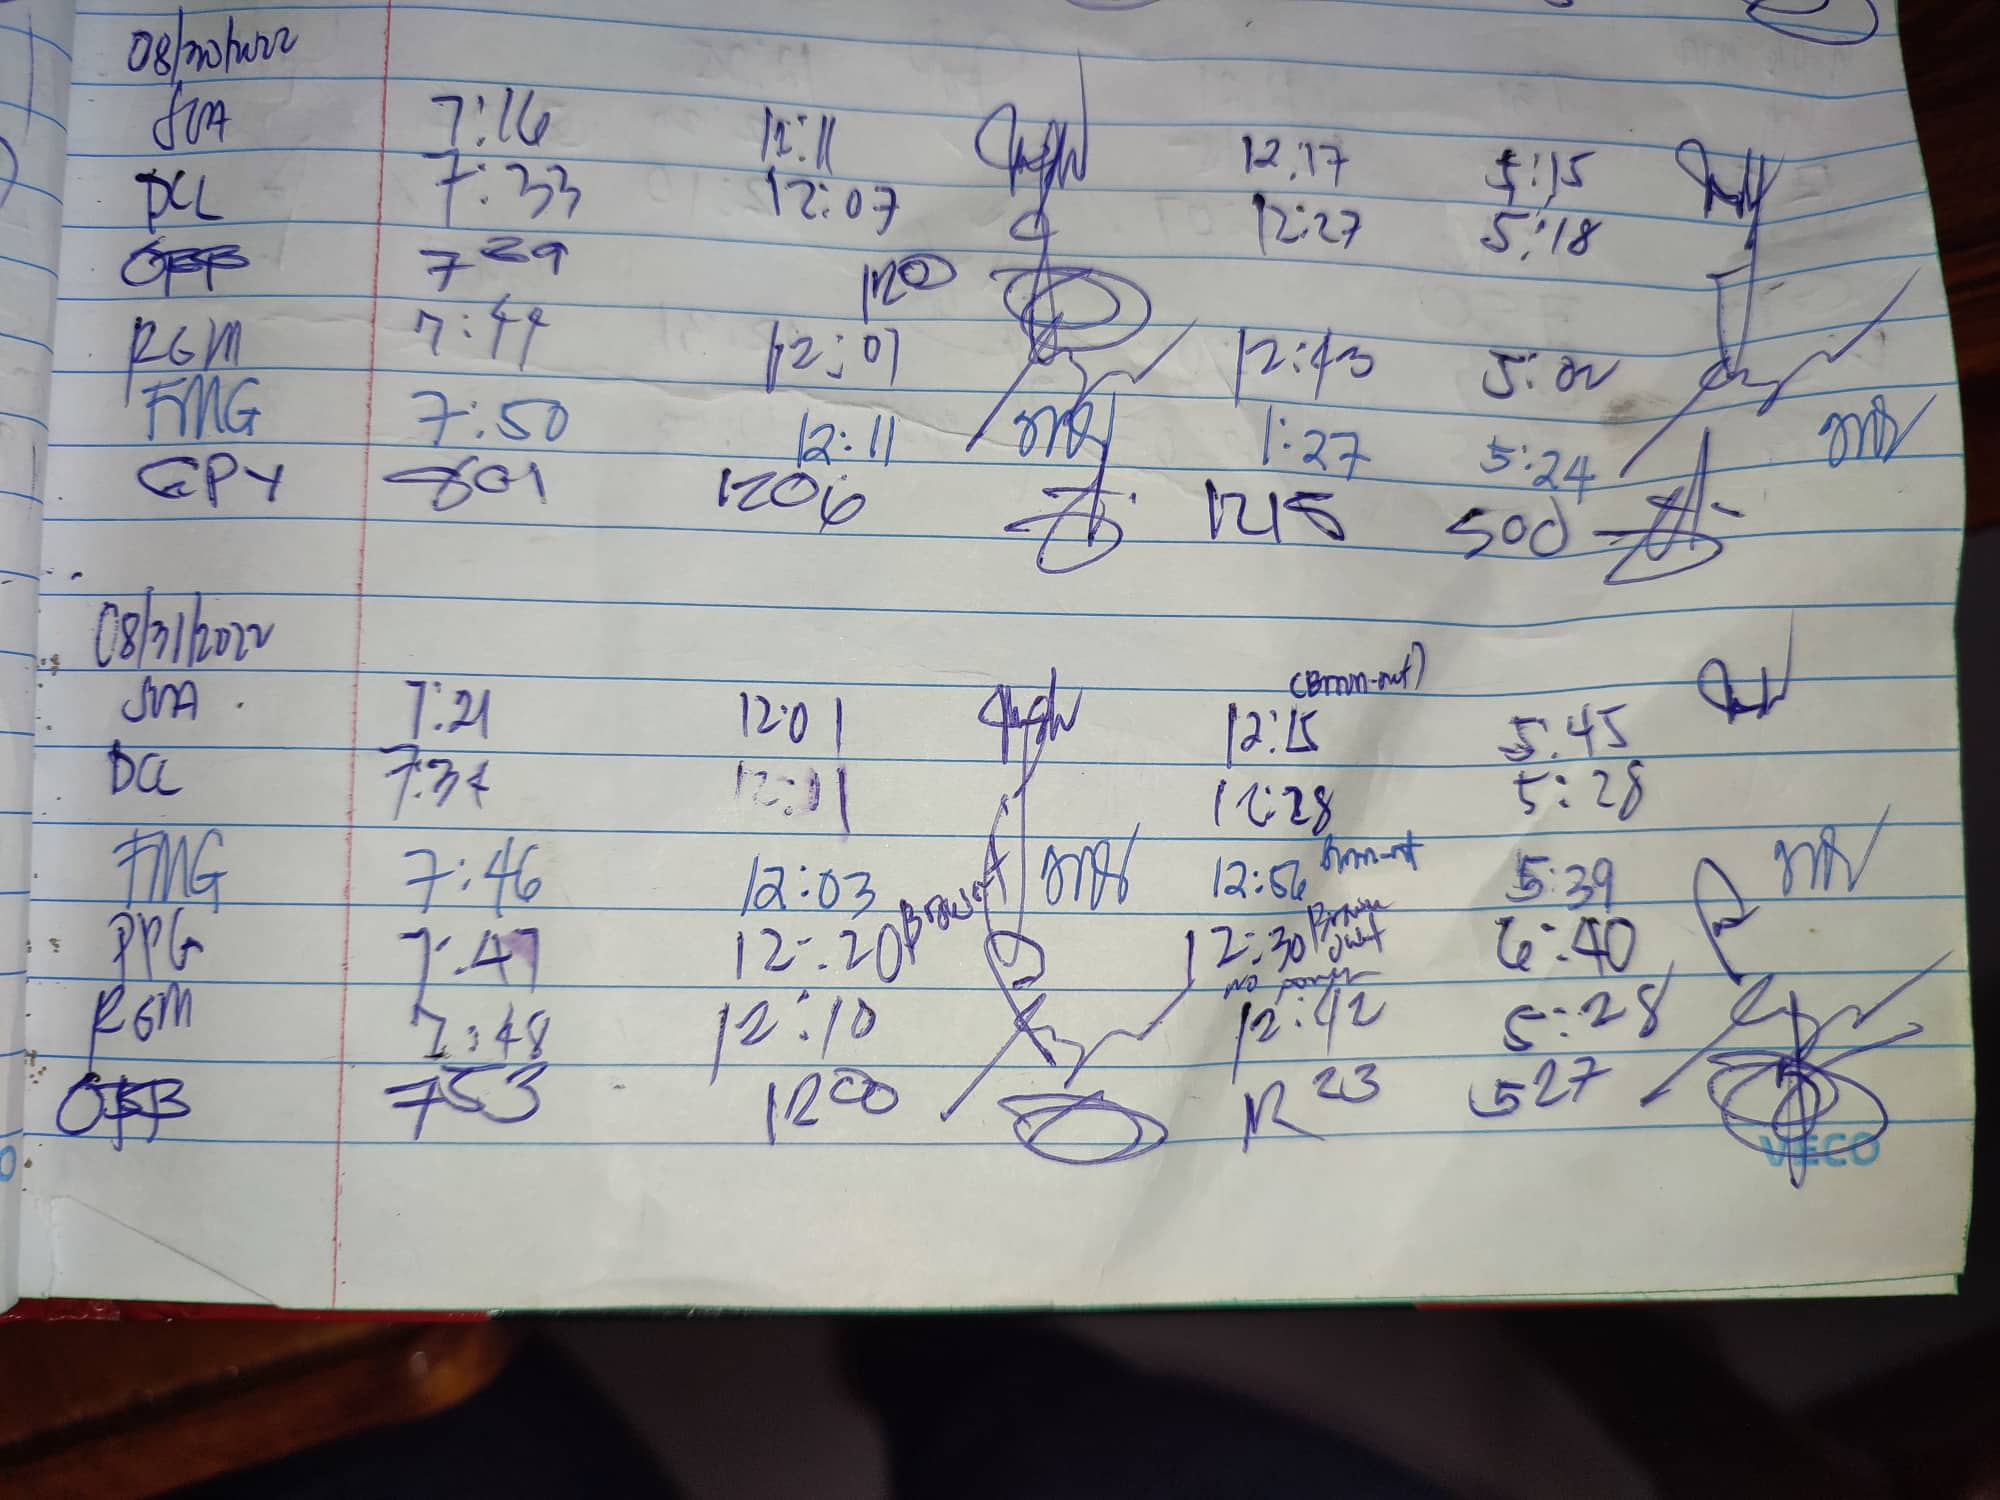 08/30/2022
7:16 12:11 12:17 5:15
DCL 7:33 12:07 12:27 5:18
7 29 12 00
RGM 7:44 12:07 12:43 5:02
FMG 7:50 12:11 1:27 5:24
GPY 801 1206 1215 500
08/31/2022
(Brown-out)
7:21 12:01 12:15 5:45
DCL 7:34 12:11 12:28 5:28
FMG 7:46 12:03 12:56 Brown-out 5:39
PPG 7:47 12:20 Brown out 12:30 Brown out 6:40
no power
RGM 7:48 12:10 12:42 5:28
753 12 00 12 23 5 27
VECO